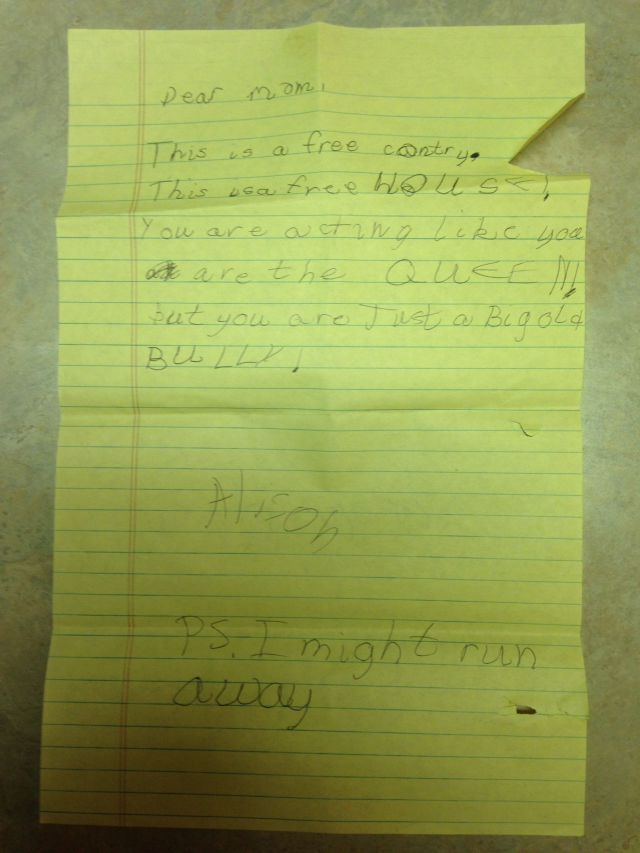 Dear mom,
This is a free contry.
This is a free HOUSE!
You are acting like you
are the QUEEN!
but you are Just a Big old
BULLY!
Alison
PS. I might run
away